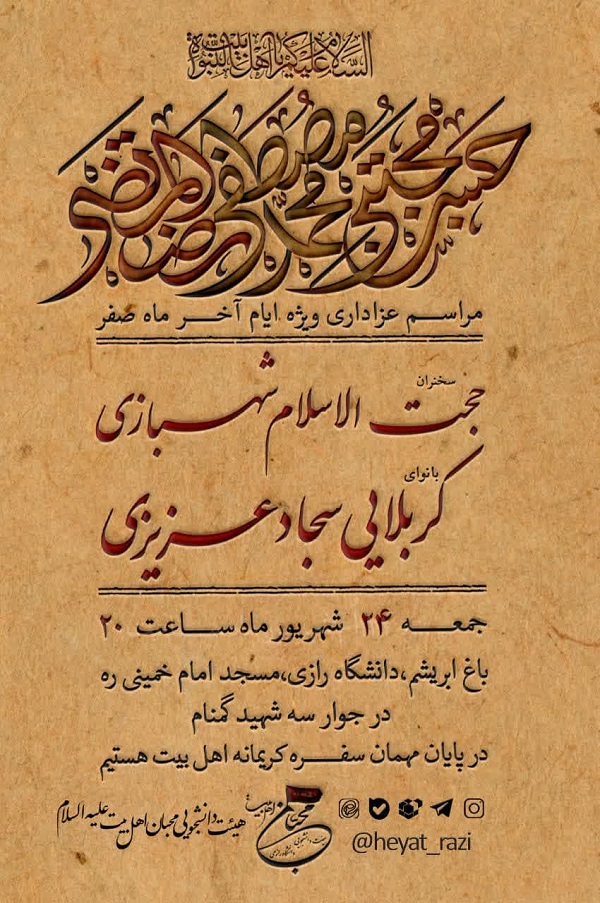 السلام علیکم یا اهل بیت النبوة
مراسم عزاداری ویژه ایام آخر ماه صفر
سخنران
حجت الاسلام شهبازی
بانوای
کربلایی سجاد عزیزی
جمعه ۲۴ شهریور ماه ساعت ۲۰
باغ ابریشم،دانشگاه رازی،مسجد امام خمینی ره
در جوار سه شهید گمنام
در پایان مهمان سفره کریمانه اهل بیت هستیم
هیئت دانشجویی محبان اهل بیت علیه السلام
@heyat_razi